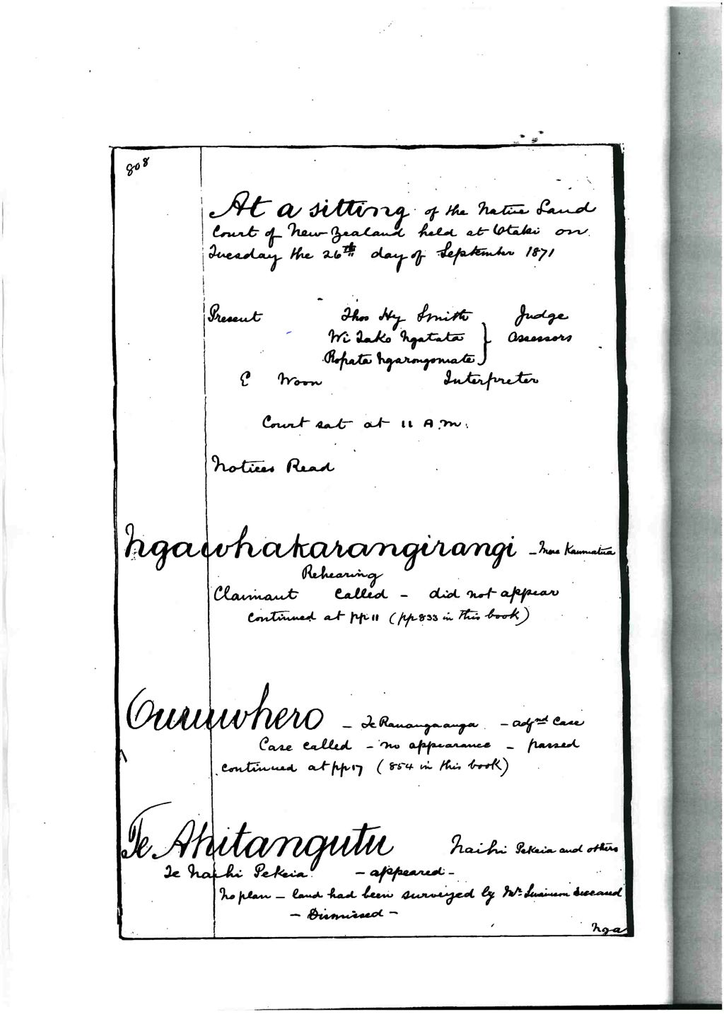 808
At a sitting of the Native Land
Court of New Zealand held at Otaki on
Tuesday the 26th day of September 1871
Present Thos Hy Smith Judge
Wi Tako Ngatata } Assessors
Ropata Ngarongomate
E Woon Interpreter
Court sat at 11 A.M.
Notices Read
Ngawhakarangirangi - Mere Kaumatua
Rehearing
Claimant called - did not appear
continued at pp 11 (pp 833 in this book)
Oururuwhero - Te Rauangaanga - adjnd case
Case called - no appearance - passed
continued at pp 17 (854 in this book)
Te Ahitangutu Naihi Pekeia and others
Te Naihi Pekeia - appeared -
No plan - land had been surveyed by Mr deceased
- Dismissed -
Nga